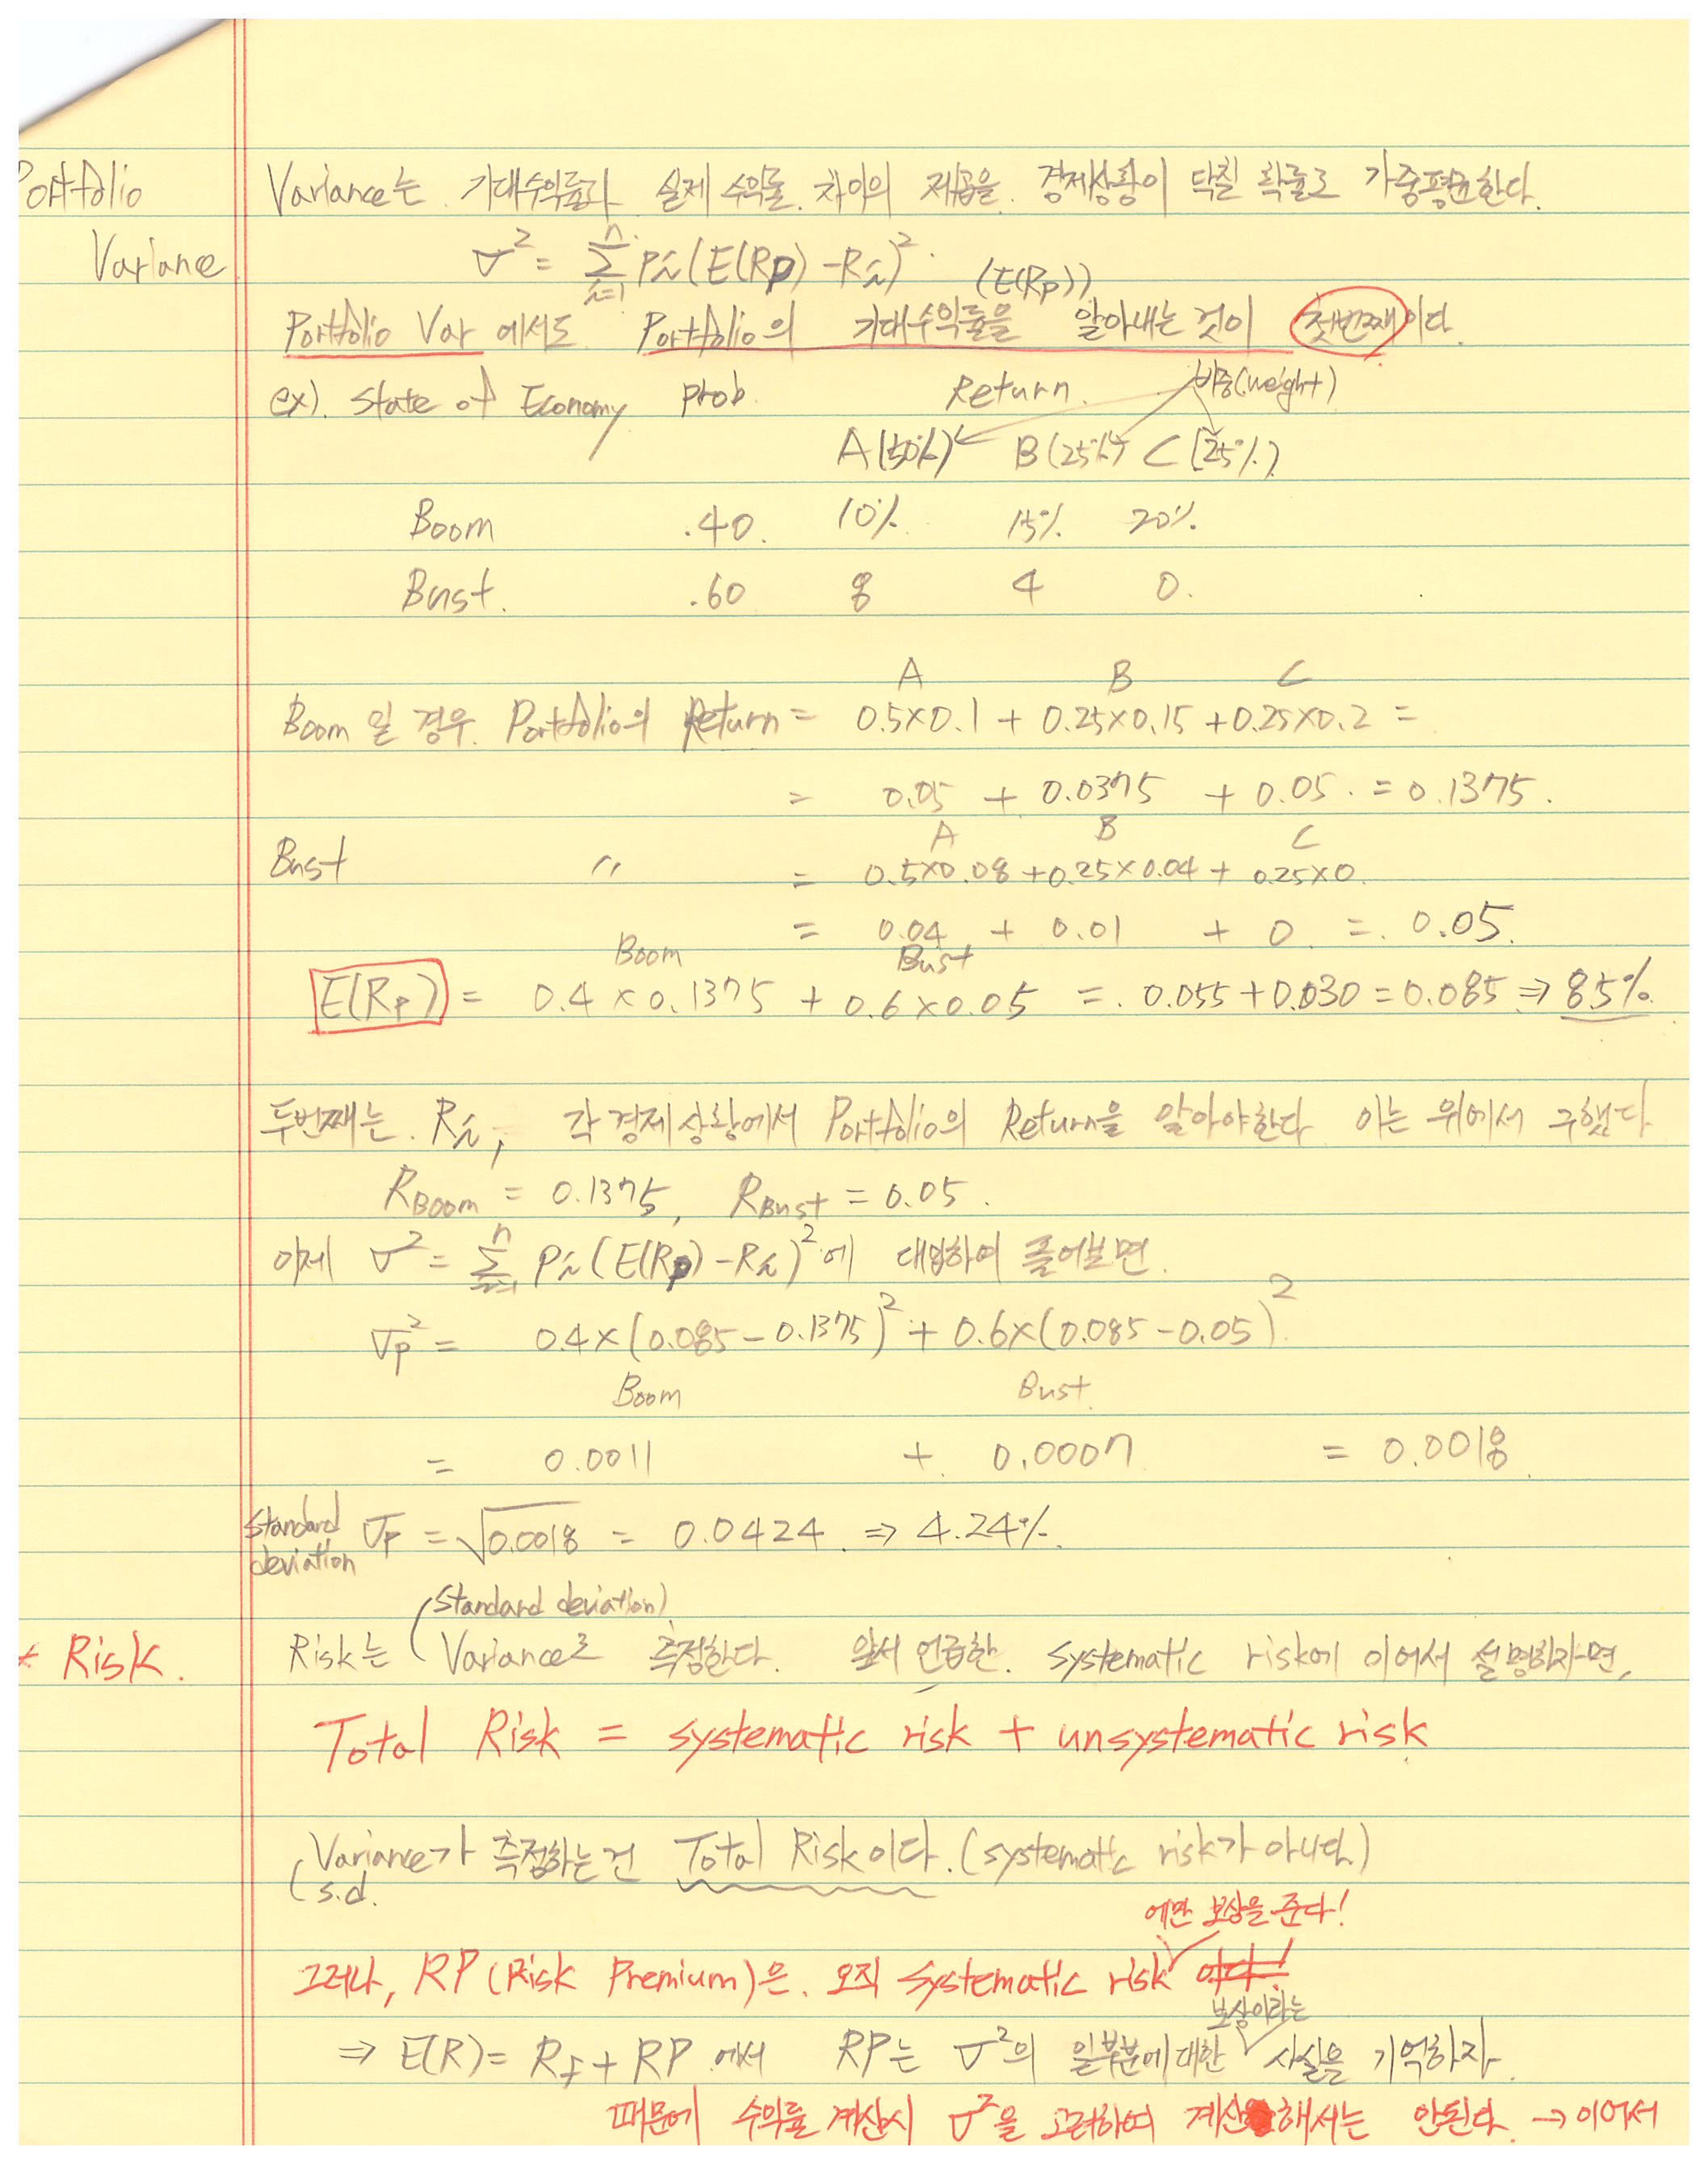 Portfolio Variance
Variance는 기대수익률과 실제 수익률 차이의 제곱을 경제상황이 닥칠 확률로 가중평균한다.
σ² = Σⁿᵢ₌₁ Pi (E(Rp) - Ri)²
(E(Rp))
Portfolio Var 에서도 Portfolio의 기대수익률을 알아내는 것이 첫번째이다.
ex). State of Economy prob. Return. 비중(weight)
A(50%) B(25%) C(25%)
Boom .40. 10% 15% 20%
Bust. .60 8 4 0.
A B C
Boom 일 경우 Portfolio의 Return = 0.5×0.1 + 0.25×0.15 + 0.25×0.2 =
= 0.05 + 0.0375 + 0.05 = 0.1375.
A B C
Bust 〃 = 0.5×0.08 + 0.25×0.04 + 0.25×0
= 0.04 + 0.01 + 0 = 0.05.
Boom Bust
E(Rp) = 0.4 × 0.1375 + 0.6 × 0.05 = 0.055 + 0.030 = 0.085 ⇒ 8.5%
두번째는 Ri, 각 경제상황에서 Portfolio의 Return을 알아야한다 이는 위에서 구했다
RBoom = 0.1375, RBust = 0.05.
이제 σ² = Σⁿᵢ₌₁ Pi (E(Rp) - Ri)² 에 대입하여 풀어보면.
σp² = 0.4 × (0.085 - 0.1375)² + 0.6 × (0.085 - 0.05)²
Boom Bust
= 0.0011 + 0.0007 = 0.0018
Standard deviation σp = √0.0018 = 0.0424 ⇒ 4.24%
(Standard deviation)
* Risk. Risk는 Variance로 측정한다. 앞서 언급한 systematic risk에 이어서 설명하자면,
Total Risk = systematic risk + unsystematic risk
(Variance가 측정하는건 Total Risk이다. (systematic risk가 아니다.)
s.d.
에만 보상을 준다!
그러나, RP (Risk Premium)은 오직 systematic risk 이다!
보상이라는
⇒ E(R) = Rf + RP 에서 RP는 σ²의 일부분에 대한 사실을 기억하자.
때문에 수익률 계산시 σ²을 고려하여 계산해서는 안된다. → 이어서